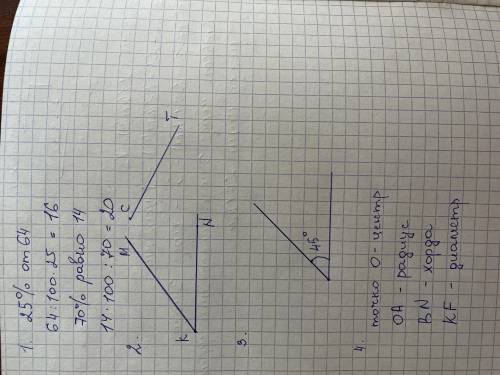 1. 25% от 64
64:100·25 = 16
70% равно 14
14·100:70 = 20
2.
M
C
T
K
N
3.
45°
4. точка O - центр
OA - радиус
BN - хорда
KF - диаметр